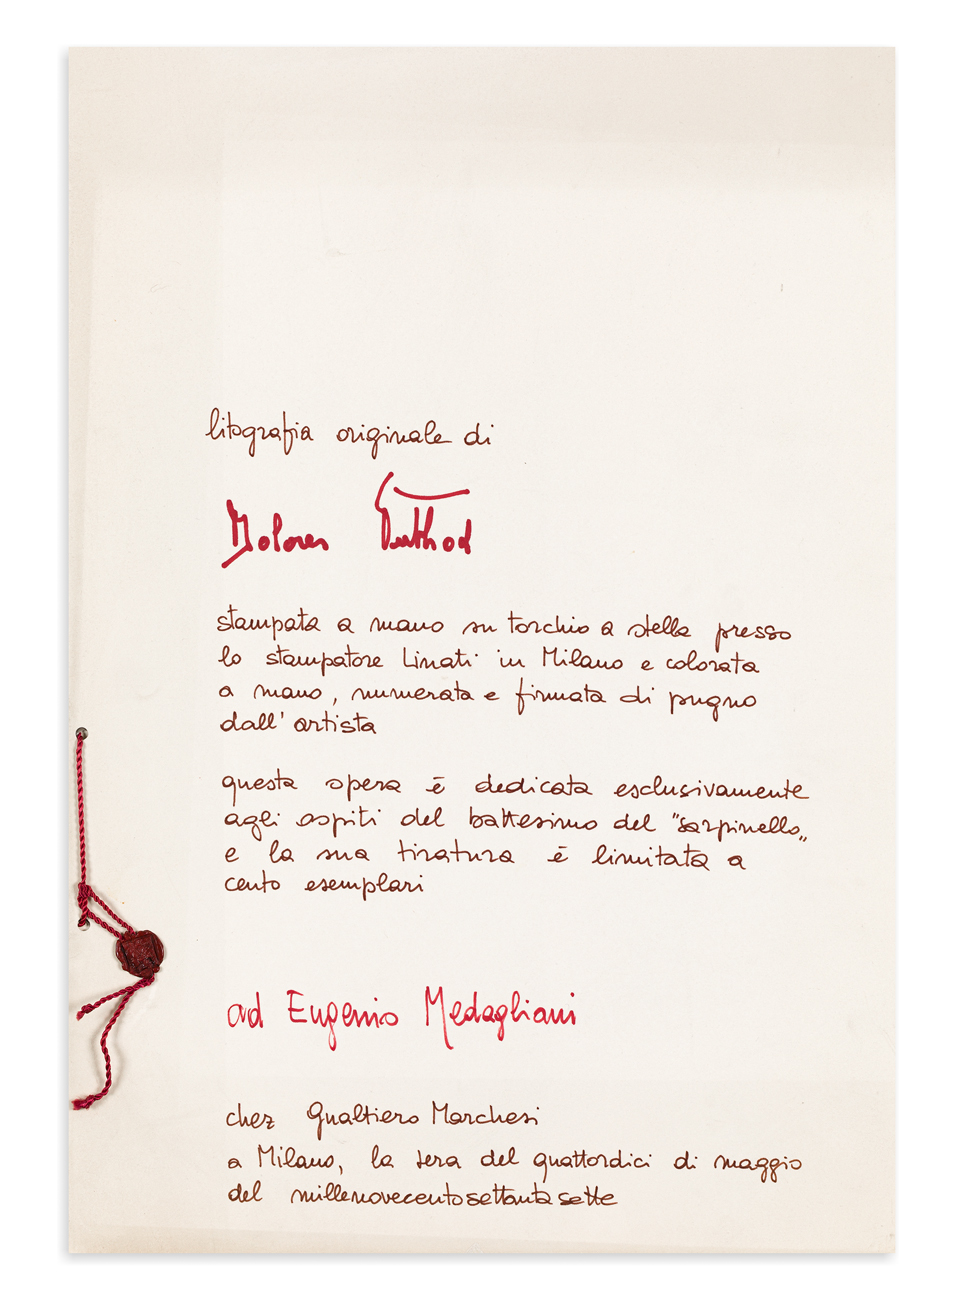 litografia originale di
Dolores Puthod
stampata a mano su torchio a stella presso
lo stampatore Linati in Milano e colorata
a mano, numerata e firmata di pugno
dall' artista
questa opera è dedicata esclusivamente
agli ospiti del battesimo del "sarpinello„
e la sua tiratura è limitata a
cento esemplari
ad Eugenio Medagliani
chez Gualtiero Marchesi
a Milano, la sera del quattordici di maggio
del millenovecentosettantasette